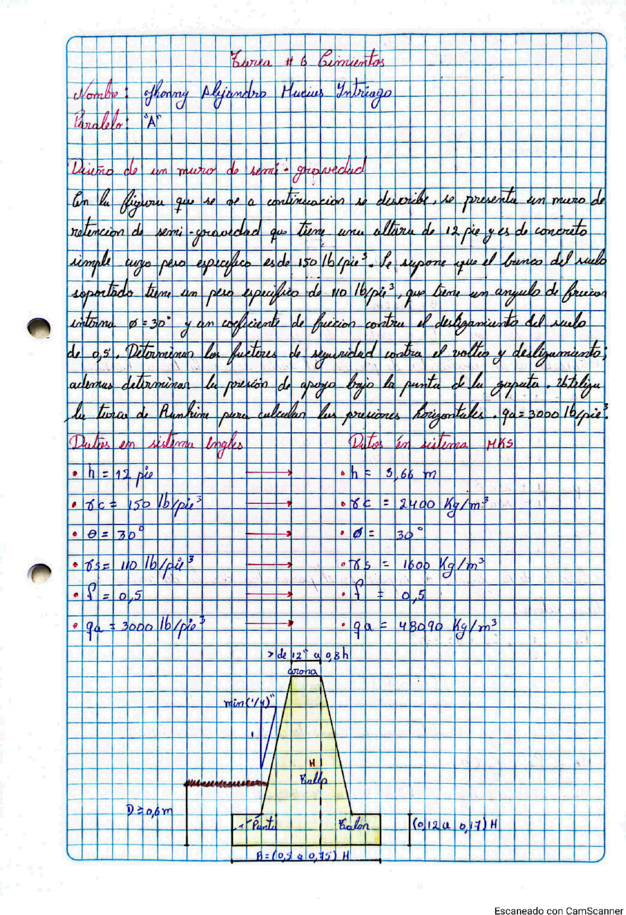 Tarea # 6 Cimientos
Nombre: Jhonny Alejandro Macias Intriago
Paralelo: "A"
Diseño de un muro de semi-gravedad
En la figura que se ve a continuacion se describe, se presenta un muro de
retencion de semi-gravedad que tiene una altura de 12 pie y es de concreto
simple cuyo peso especifico es de 150 lb/pie³. Se supone que el banco del suelo
soportado tiene un peso especifico de 110 lb/pie³, que tiene un angulo de friccion
interna Ø=30° y un coeficiente de friccion contra el deslizamiento del suelo
de 0,5. Determinar los factores de seguridad contra el volteo y deslizamiento;
ademas determinar la presión de apoyo bajo la punta de la zapata. Utilizar
la teoria de Rankine para calcular las presiones horizontales. qa=3000 lb/pie³.
Datos en sistema Ingles Datos en sistema MKS
• h = 12 pie • h = 3,66 m
• γc = 150 lb/pie³ • γc = 2400 Kg/m³
• θ = 30° • Ø = 30°
• γs = 110 lb/pie³ • γs = 1600 Kg/m³
• f = 0,5 • f = 0,5
• qa = 3000 lb/pie³ • qa = 48090 Kg/m³
> de 12" a 0,8h
corona
min(1/4)"
1
H
Talla
D≥0,6m
Punta Talon (0,12 a 0,17) H
B=(0,5 a 0,75) H
Escaneado con CamScanner